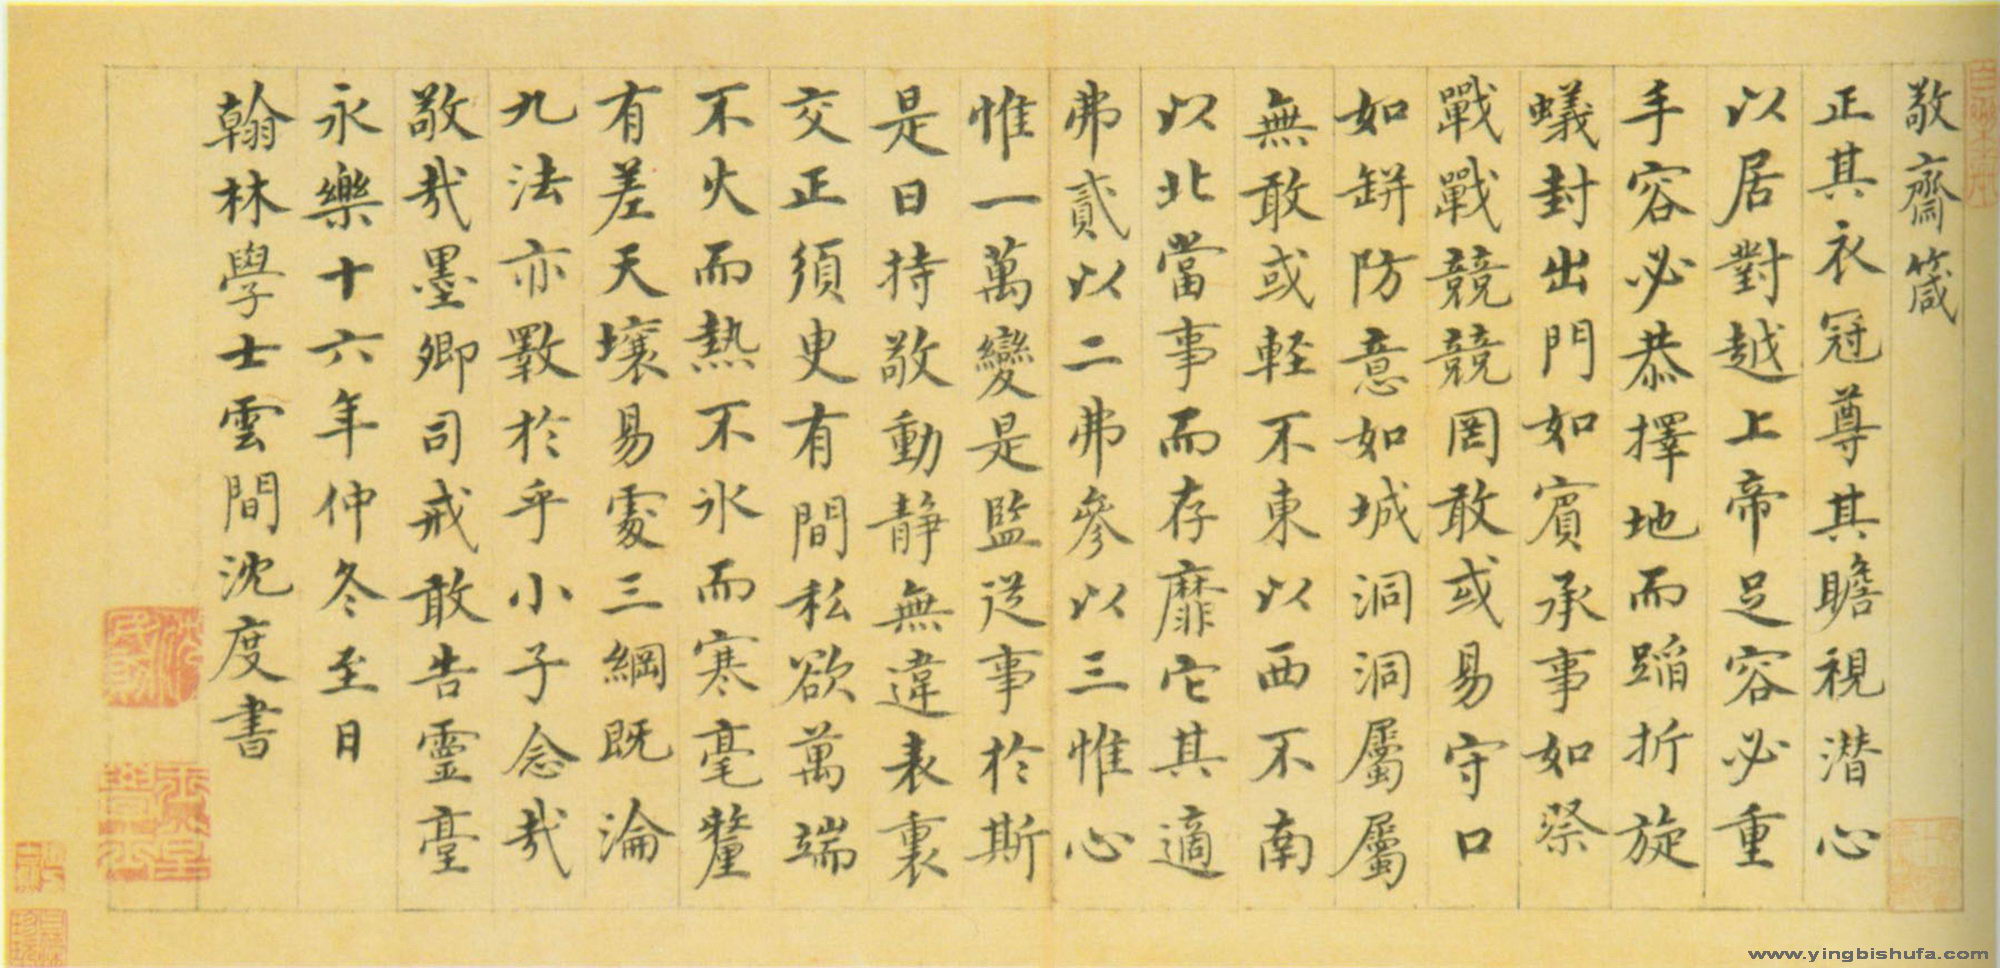 敬齋箴
正其衣冠尊其瞻視潛心
以居對越上帝足容必重
手容必恭擇地而蹈折旋
蟻封出門如賓承事如祭
戰戰兢兢罔敢或易守口
如缾防意如城洞洞屬屬
無敢或軽不東以西不南
以北當事而存靡它其適
弗貳以二弗參以三惟心
惟一萬變是監従事於斯
是曰持敬動静無違表裏
交正須臾有間私欲萬端
不火而熱不氷而寒毫釐
有差天壤易處三綱既淪
九法亦斁於乎小子念哉
敬哉墨卿司戒敢告靈臺
永樂十六年仲冬至日
翰林學士雲間沈度書
www.yingbishufa.com